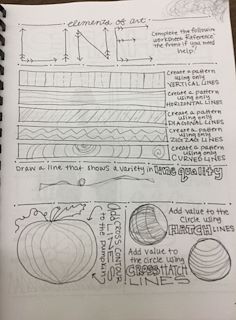 elements of art:
LINE
Complete the following
worksheet. Reference
the front if you need
help!
Create a pattern
using only
VERTICAL LINES
Create a pattern
using only
HORIZONTAL LINES
Create a pattern
using only
DIAGONAL LINES
Create a pattern
using only
ZIGZAG LINES
Create a pattern
using only
CURVED LINES
Draw a line that shows a variety in line quality
Add CROSS CONTOUR
LINES
to the pumpkin!
Add value to the
circle using
HATCH LINES
Add value to
the circle using
CROSSHATCH
LINES